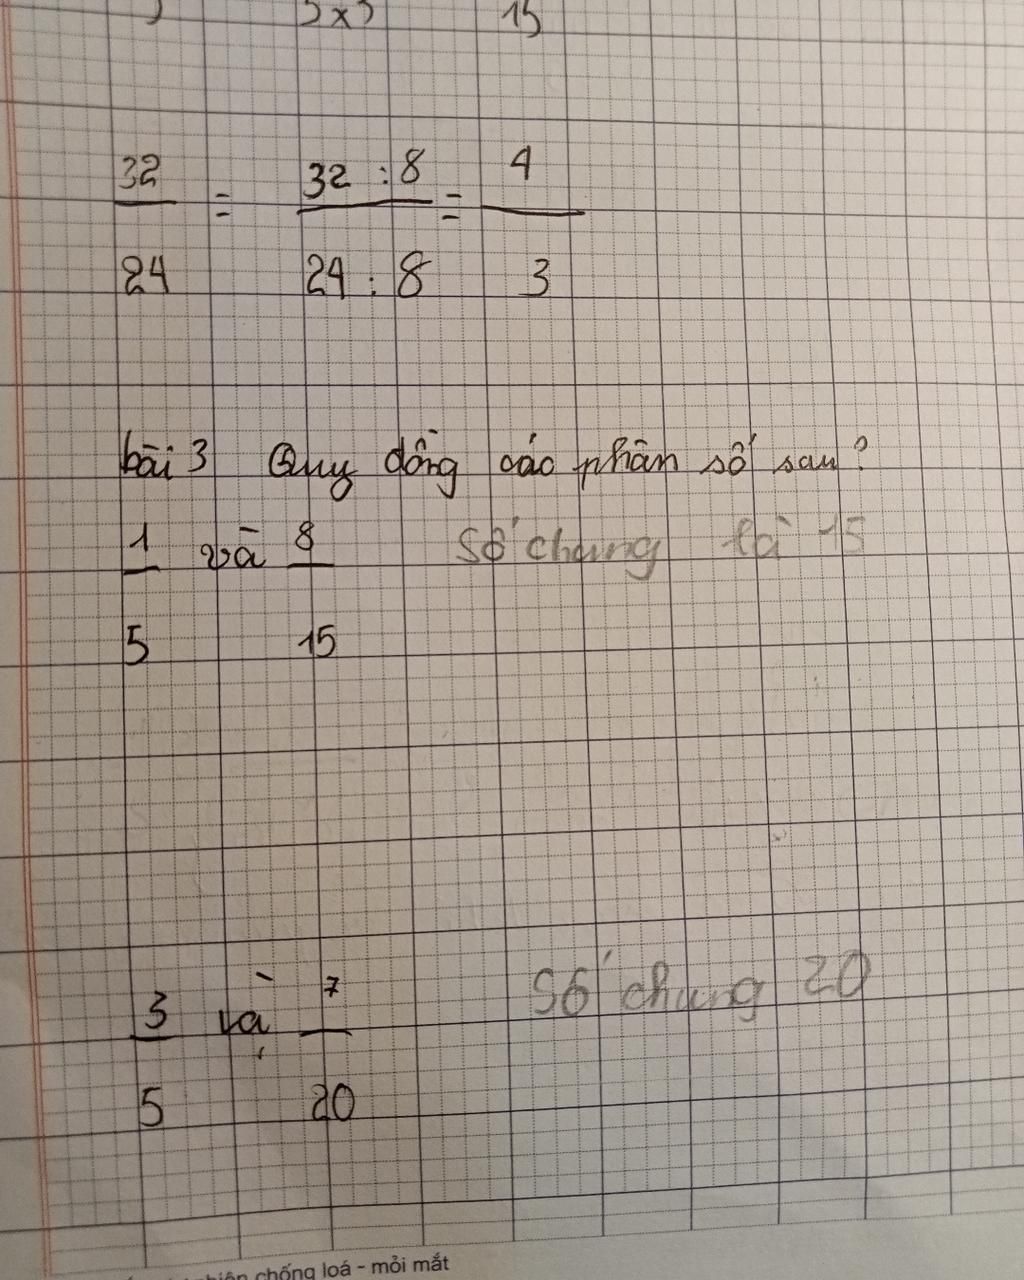 5x3 15
32 = 32 : 8 = 4
24 24 : 8 3
bài 3 Quy đồng các phân số sau?
1 và 8 Số chung là 15
5 15
3 và 7 Số chung 20
5 20
chống loá - mỏi mắt